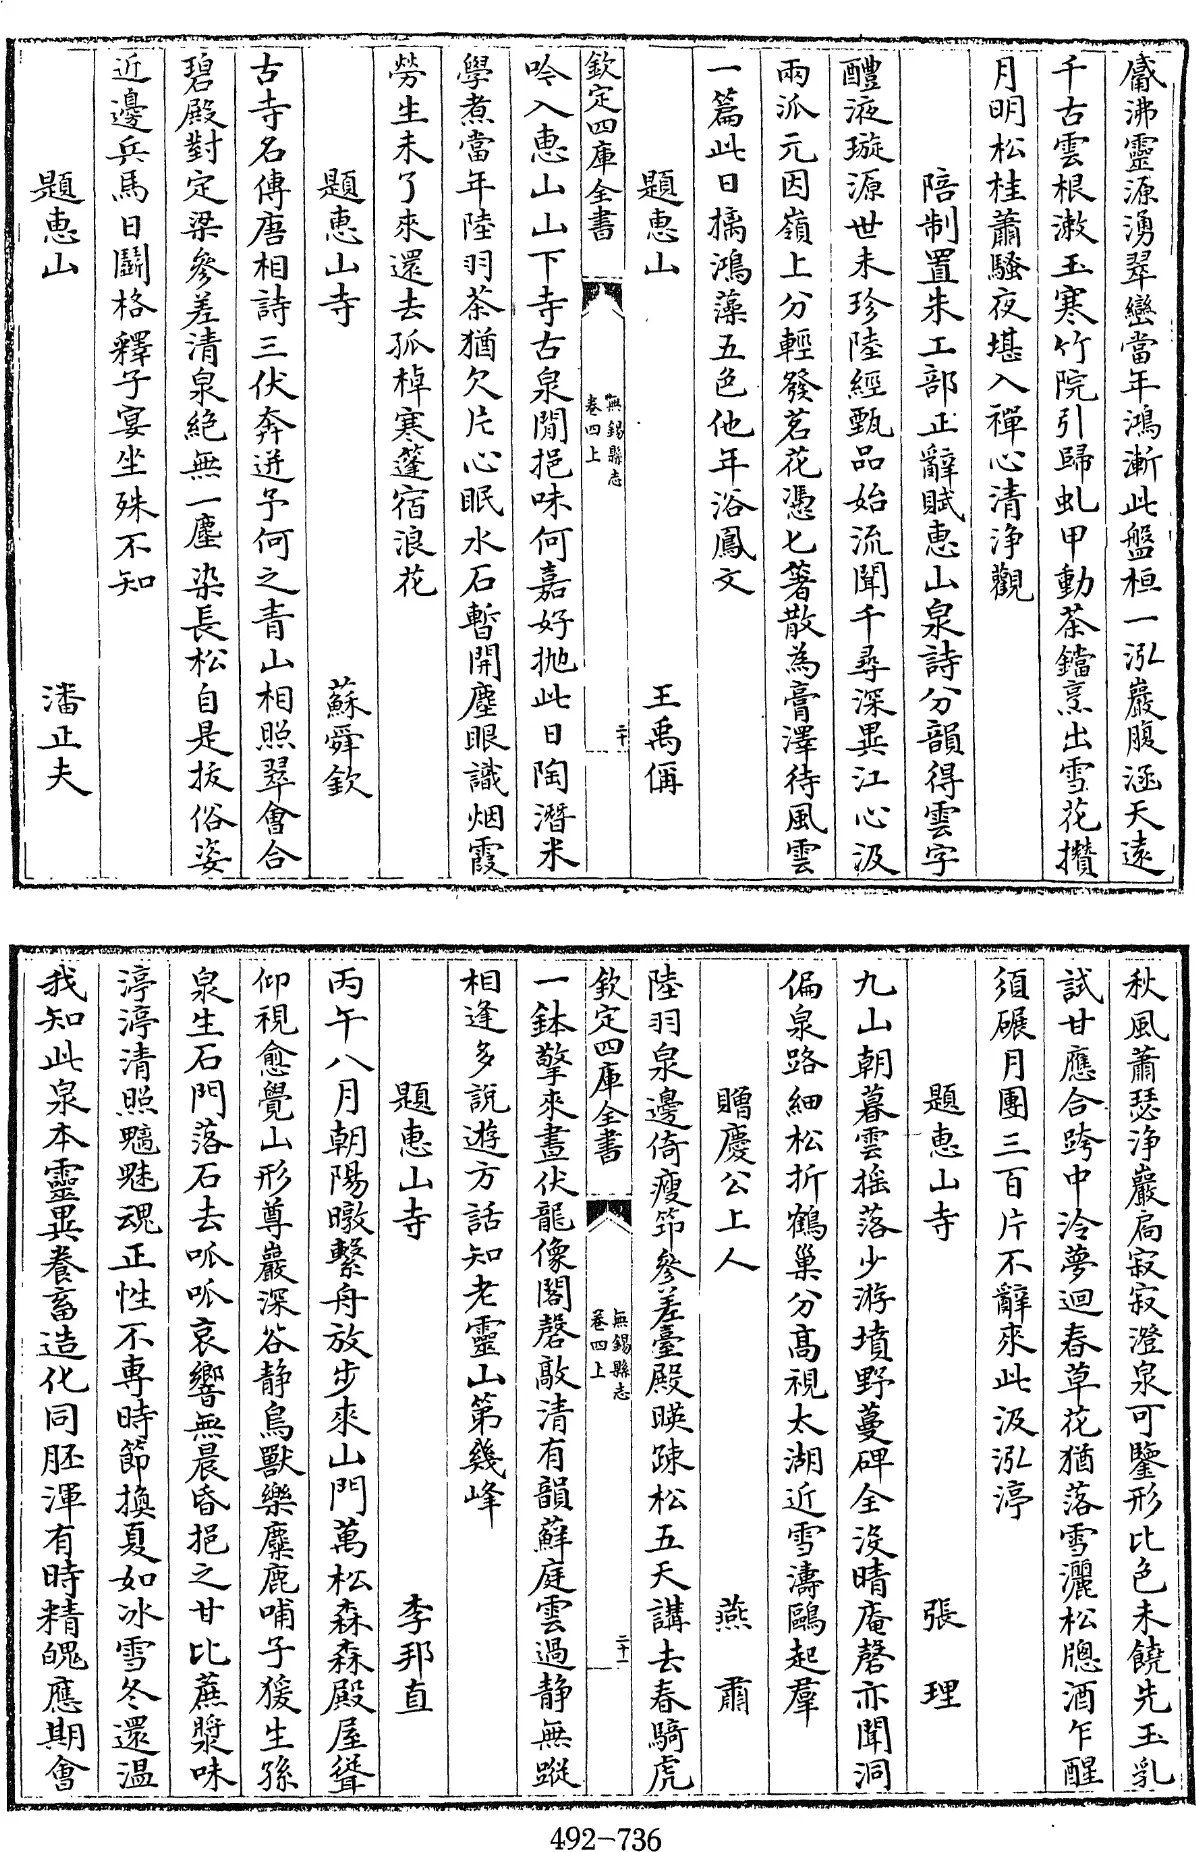 觱沸靈源湧翠巒當年鴻漸此盤桓一泓巖腹涵天遠
千古雲根漱玉寒竹院引歸虬甲動茶鐺烹出雪花攢
月明松桂蕭騷夜堪入禪心清浄觀
陪制置朱工部正辭賦惠山泉詩分韻得雲字
醴液璇源世未珍陸經甄品始流聞千尋深異江心汲
兩派元因嶺上分輕發茗花憑匕箸散為膏澤待風雲
一篇此日摛鴻藻五色他年浴鳳文
題惠山 王禹偁
欽定四庫全書 無錫縣志 卷四上 二十
吟入惠山山下寺古泉閒挹味何嘉好抛此日陶潛米
學煮當年陸羽茶猶欠片心眠水石暫開塵眼識烟霞
勞生未了來還去孤棹寒蓬宿浪花
題惠山寺 蘇舜欽
古寺名傳唐相詩三伏奔迸予何之青山相照翠會合
碧殿對定梁參差清泉絶無一塵染長松自是拔俗姿
近邊兵馬日鬬格釋子宴坐殊不知
題惠山 潘正夫
秋風蕭瑟浄巖扃寂寂澄泉可鑒形比色未饒先玉乳
試甘應合跨中泠夢迴春草花猶落雪灑松牕酒乍醒
須碾月團三百片不辭來此汲泓渟
題惠山寺 張理
九山朝暮雲摇落少游墳野蔓碑全沒晴庵磬亦聞洞
偏泉路細松折鶴巢分髙視太湖近雪濤鷗起羣
贈慶公上人 燕肅
陸羽泉邊倚瘦笻參差臺殿暎疎松五天講去春騎虎
欽定四庫全書 無錫縣志 卷四上 二十一
一鉢擎來晝伏龍像閣磬敲清有韻蘚庭雲過静無蹤
相逢多說遊方話知老靈山第幾峰
題惠山寺 李邦直
丙午八月朝陽暾繫舟放步來山門萬松森森殿屋聳
仰視愈覺山形尊巖深谷静鳥獸樂麋鹿哺子猨生孫
泉生石門落石去呱呱哀響無晨昏挹之甘比蔗漿味
渟渟清照魑魅魂正性不専時節換夏如冰雪冬還温
我知此泉本靈異養畜造化同胚渾有時精魄應期會
492-736